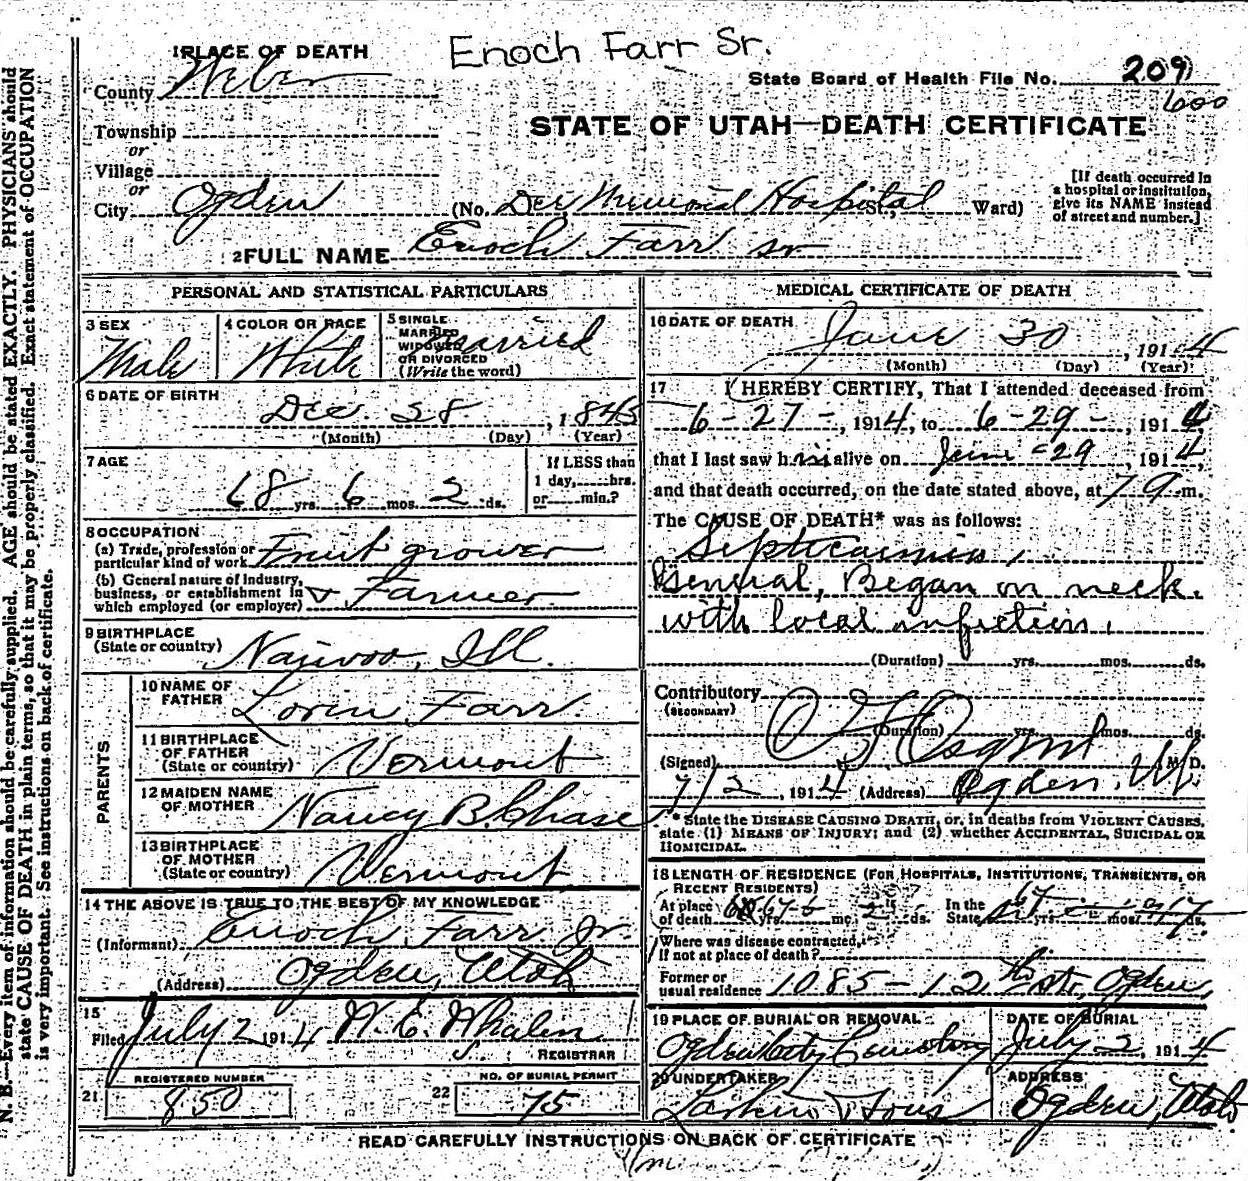 Enoch Farr Sr.
1 PLACE OF DEATH
State Board of Health File No. 209
600
County Weber
STATE OF UTAH—DEATH CERTIFICATE
Township
or
Village
or
City Ogden (No. Dee Memorial Hospital, Ward)
[If death occurred in
a hospital or institution,
give its NAME instead
of street and number.]
2 FULL NAME Enoch Farr Sr
PERSONAL AND STATISTICAL PARTICULARS
3 SEX
Male
4 COLOR OR RACE
White
5 SINGLE
MARRIED
WIDOWED
OR DIVORCED
(Write the word)
Married
6 DATE OF BIRTH
Dec. 28, 1845
(Month) (Day) (Year)
7 AGE
68 yrs. 6 mos. 2 ds.
If LESS than
1 day, hrs.
or min.?
8 OCCUPATION
(a) Trade, profession or
particular kind of work Fruit grower
(b) General nature of industry,
business, or establishment in
which employed (or employer) & Farmer
9 BIRTHPLACE
(State or country) Nauvoo, Ill.
PARENTS
10 NAME OF
FATHER Lorin Farr.
11 BIRTHPLACE
OF FATHER
(State or country) Vermont
12 MAIDEN NAME
OF MOTHER Nancy B. Chase
13 BIRTHPLACE
OF MOTHER
(State or country) Vermont
14 THE ABOVE IS TRUE TO THE BEST OF MY KNOWLEDGE
(Informant) Enoch Farr Jr.
(Address) Ogden, Utah
15
Filed July 2 1914 W. E. Whalin
REGISTRAR
21 REGISTERED NUMBER
850
22 NO. OF BURIAL PERMIT
75
MEDICAL CERTIFICATE OF DEATH
16 DATE OF DEATH
June 30, 1914
(Month) (Day) (Year)
17 I HEREBY CERTIFY, That I attended deceased from
6-27-, 1914, to 6-29-, 1914,
that I last saw him alive on June 29, 1914,
and that death occurred, on the date stated above, at 7 9 m.
The CAUSE OF DEATH* was as follows:
Septicaemia,
General, Began on neck.
with local infection.
(Duration) yrs. mos. ds.
Contributory
(SECONDARY)
(Duration) yrs. mos. ds.
(Signed) M. D.
7/2, 1914 (Address) Ogden.
* State the DISEASE CAUSING DEATH, or, in deaths from VIOLENT CAUSES,
state (1) MEANS OF INJURY; and (2) whether ACCIDENTAL, SUICIDAL OR
HOMICIDAL.
18 LENGTH OF RESIDENCE (FOR HOSPITALS, INSTITUTIONS, TRANSIENTS, OR
RECENT RESIDENTS)
At place In the
of death yrs. mo. ds. State 67 yrs. mos. ds.
Where was disease contracted,
If not at place of death?
Former or
usual residence 1085-12th str, Ogden,
19 PLACE OF BURIAL OR REMOVAL
Ogden City Cemetery
DATE OF BURIAL
July 2, 1914
20 UNDERTAKER
Larkin & Sons
ADDRESS
Ogden, Utah
READ CAREFULLY INSTRUCTIONS ON BACK OF CERTIFICATE
N. B.—Every item of information should be carefully supplied. AGE should be stated EXACTLY. PHYSICIANS should
state CAUSE OF DEATH in plain terms, so that it may be properly classified. Exact statement of OCCUPATION
is very important. See instructions on back of certificate.